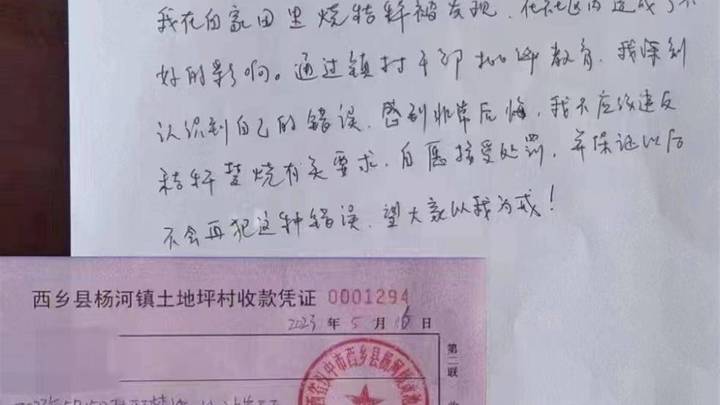 我在自家田里烧秸秆被发现，在社区内造成了不
好的影响。通过镇村干部批评教育，我深刻
认识到自己的错误，感到非常后悔，我不应该违反
秸秆禁烧有关要求，自愿接受处罚，并保证以后
不会再犯这种错误，望大家以我为戒！
西乡县杨河镇土地坪村收款凭证 0001294
2023年5月16日
第二联